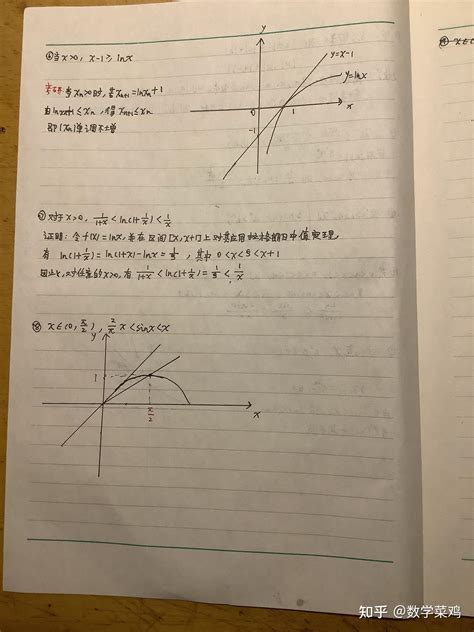 ⑥当x>0, x-1≥lnx
考研:当xₙ>0时,若xₙ₊₁=lnxₙ+1
由lnxₙ+1≤xₙ,得xₙ₊₁≤xₙ
即{xₙ}单调不增
y
y=x-1
y=lnx
0
1
x
-1
⑦对于x>0, 1/(1+x)<ln(1+1/x)<1/x
证明:令f(x)=lnx,并在区间[x,x+1]上对其应用拉格朗日中值定理
有 ln(1+1/x)=ln(1+x)-lnx=1/ξ,其中0<x<ξ<x+1
因此,对任意的x>0,有 1/(1+x)<ln(1+1/x)=1/ξ<1/x
⑧ x∈(0,π/2), 2/π x<sinx<x
y
1
π/2
x
知乎 @数学菜鸡